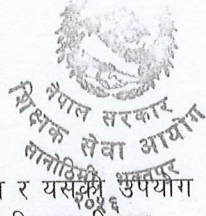 नेपाल सरकार
शिक्षक सेवा आयोग
सानोठिमी भक्तपुर
२०५६
र यसको उपयोग